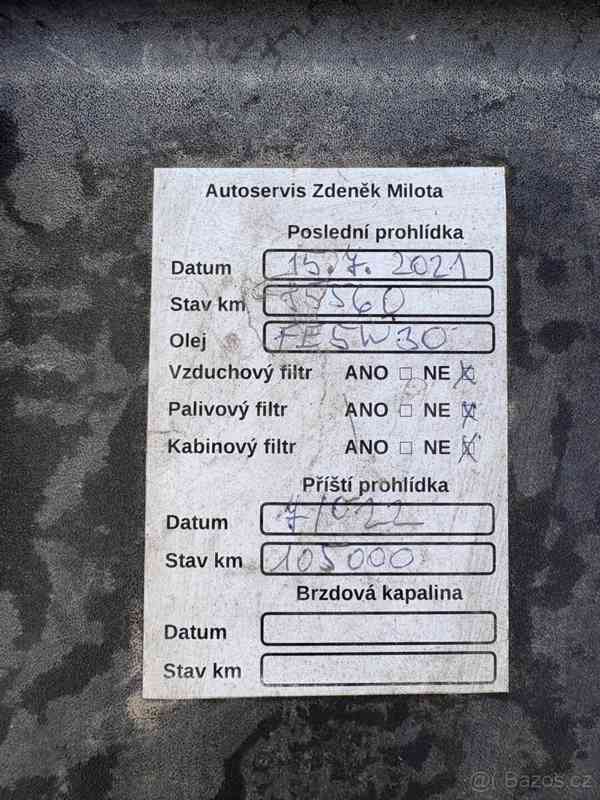 Autoservis Zdeněk Milota
Poslední prohlídka
Datum 15.7. 2021
Stav km
Olej FE5W30
Vzduchový filtr ANO □ NE ☒
Palivový filtr ANO □ NE ☒
Kabinový filtr ANO □ NE ☒
Příští prohlídka
Datum
Stav km 105000
Brzdová kapalina
Datum
Stav km
Bazos.cz